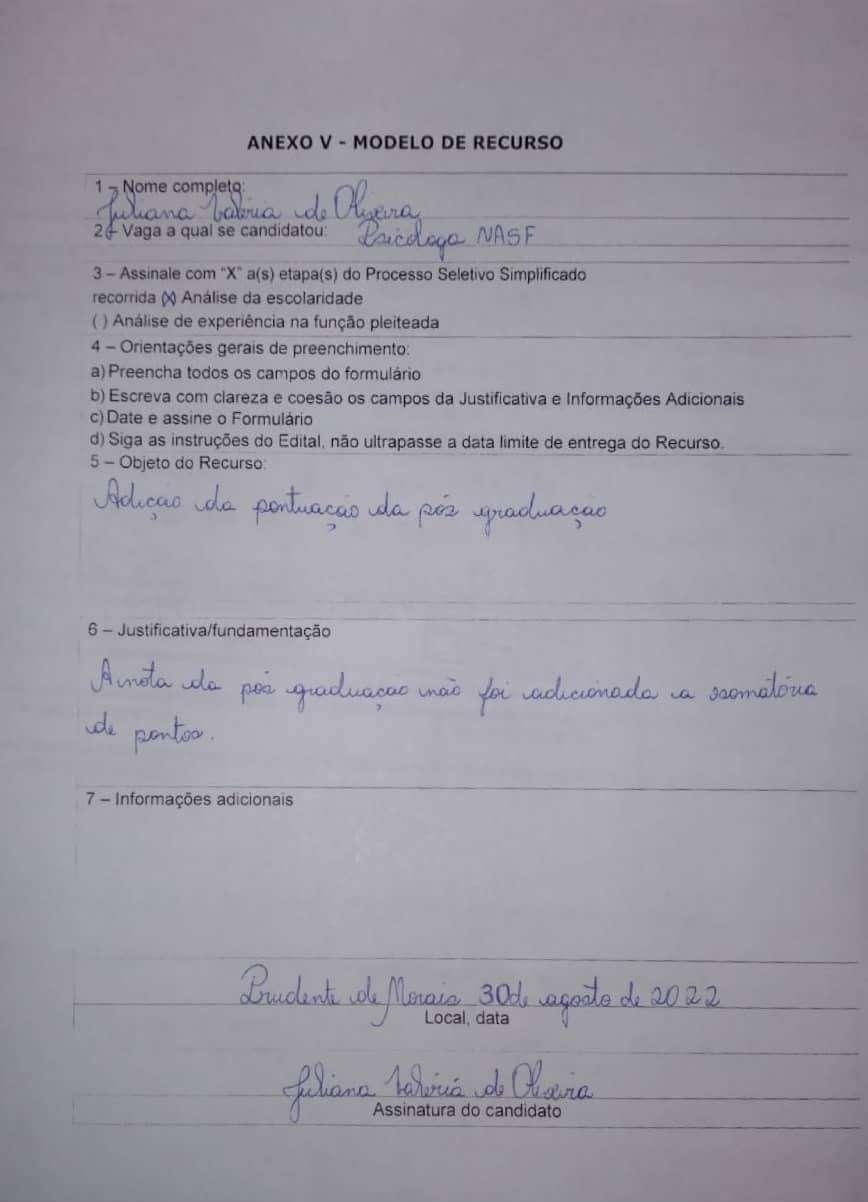 ANEXO V - MODELO DE RECURSO
1 – Nome completo:
Juliana Valéria de Oliveira
2 – Vaga a qual se candidatou: Psicóloga NASF
3 – Assinale com "X" a(s) etapa(s) do Processo Seletivo Simplificado
recorrida (X) Análise da escolaridade
( ) Análise de experiência na função pleiteada
4 – Orientações gerais de preenchimento:
a) Preencha todos os campos do formulário
b) Escreva com clareza e coesão os campos da Justificativa e Informações Adicionais
c) Date e assine o Formulário
d) Siga as instruções do Edital, não ultrapasse a data limite de entrega do Recurso.
5 – Objeto do Recurso:
Adição da pontuação da pós graduação
6 – Justificativa/fundamentação
A nota da pós graduação não foi adicionada a somatória
de pontos.
7 – Informações adicionais
Prudente de Morais 30 de agosto de 2022
Local, data
Juliana Valéria de Oliveira
Assinatura do candidato